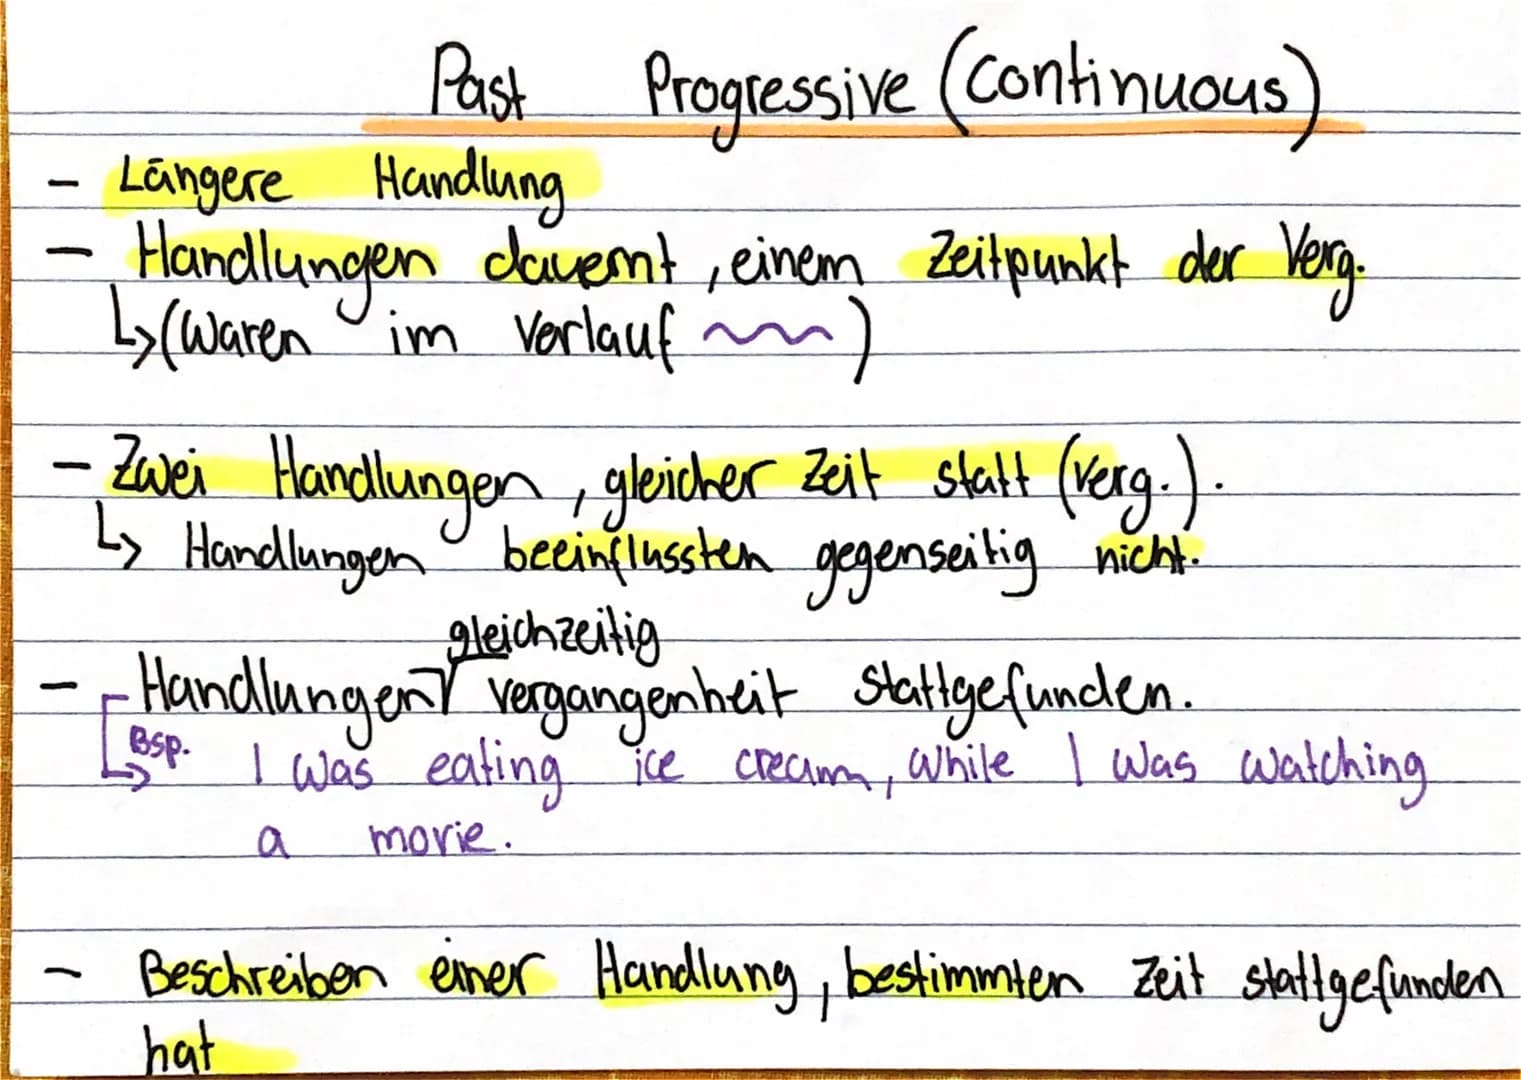 Past Progressive (continuous)
- Längere Handlung
- Handlungen dauernt, einem Zeitpunkt der Verg.
↳ (Waren im Verlauf ~~~)
- Zwei Handlungen, gleicher Zeit statt (Verg.).
↳ Handlungen beeinflussten gegenseitig nicht.
gleichzeitig
- Handlungen vergangenheit stattgefunden.
↳ Bsp. I was eating ice cream, while I was watching
a movie.
- Beschreiben einer Handlung, bestimmten Zeit stattgefunden
hat